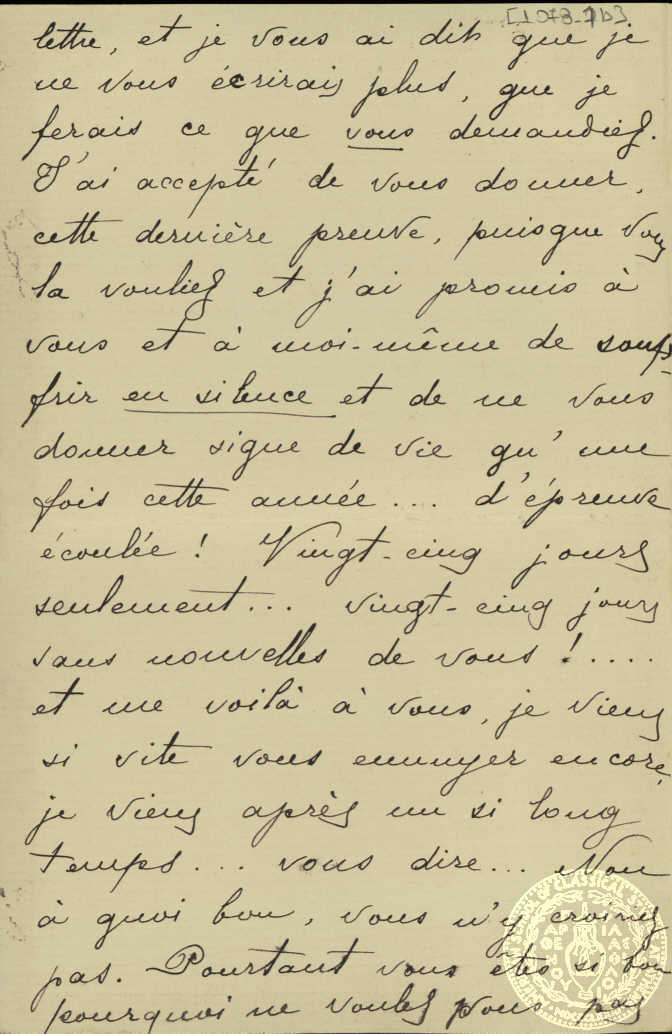 [1078-1b]
lettre, et je vous ai dit que je
ne vous écrirais plus, que je
ferais ce que vous demandiez.
J'ai accepté de vous donner,
cette dernière preuve, puisque vous
la vouliez et j'ai promis à
vous et à moi-même de souf-
frir en silence et de ne vous
donner signe de vie qu'une
fois cette année... d'épreuve
écoulée! Vingt-cinq jours
seulement... vingt-cinq jours
sans nouvelles de vous!....
et me voilà à vous, je viens
si vite vous ennuyer encore,
je viens après un si long
temps... vous dire... Non
à quoi bon, vous n'y croirez
pas. Pourtant vous êtes si bon
pourquoi ne voulez vous pas